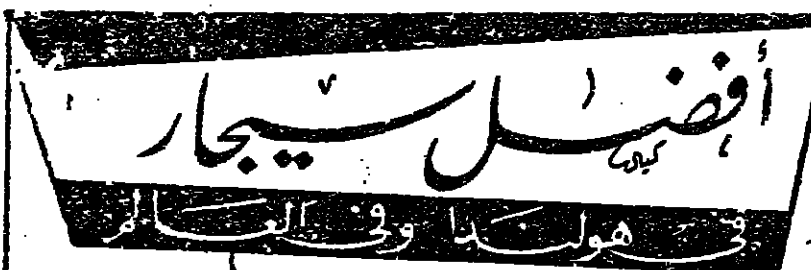 أفضل سيجار
في هولندا وفي العالم